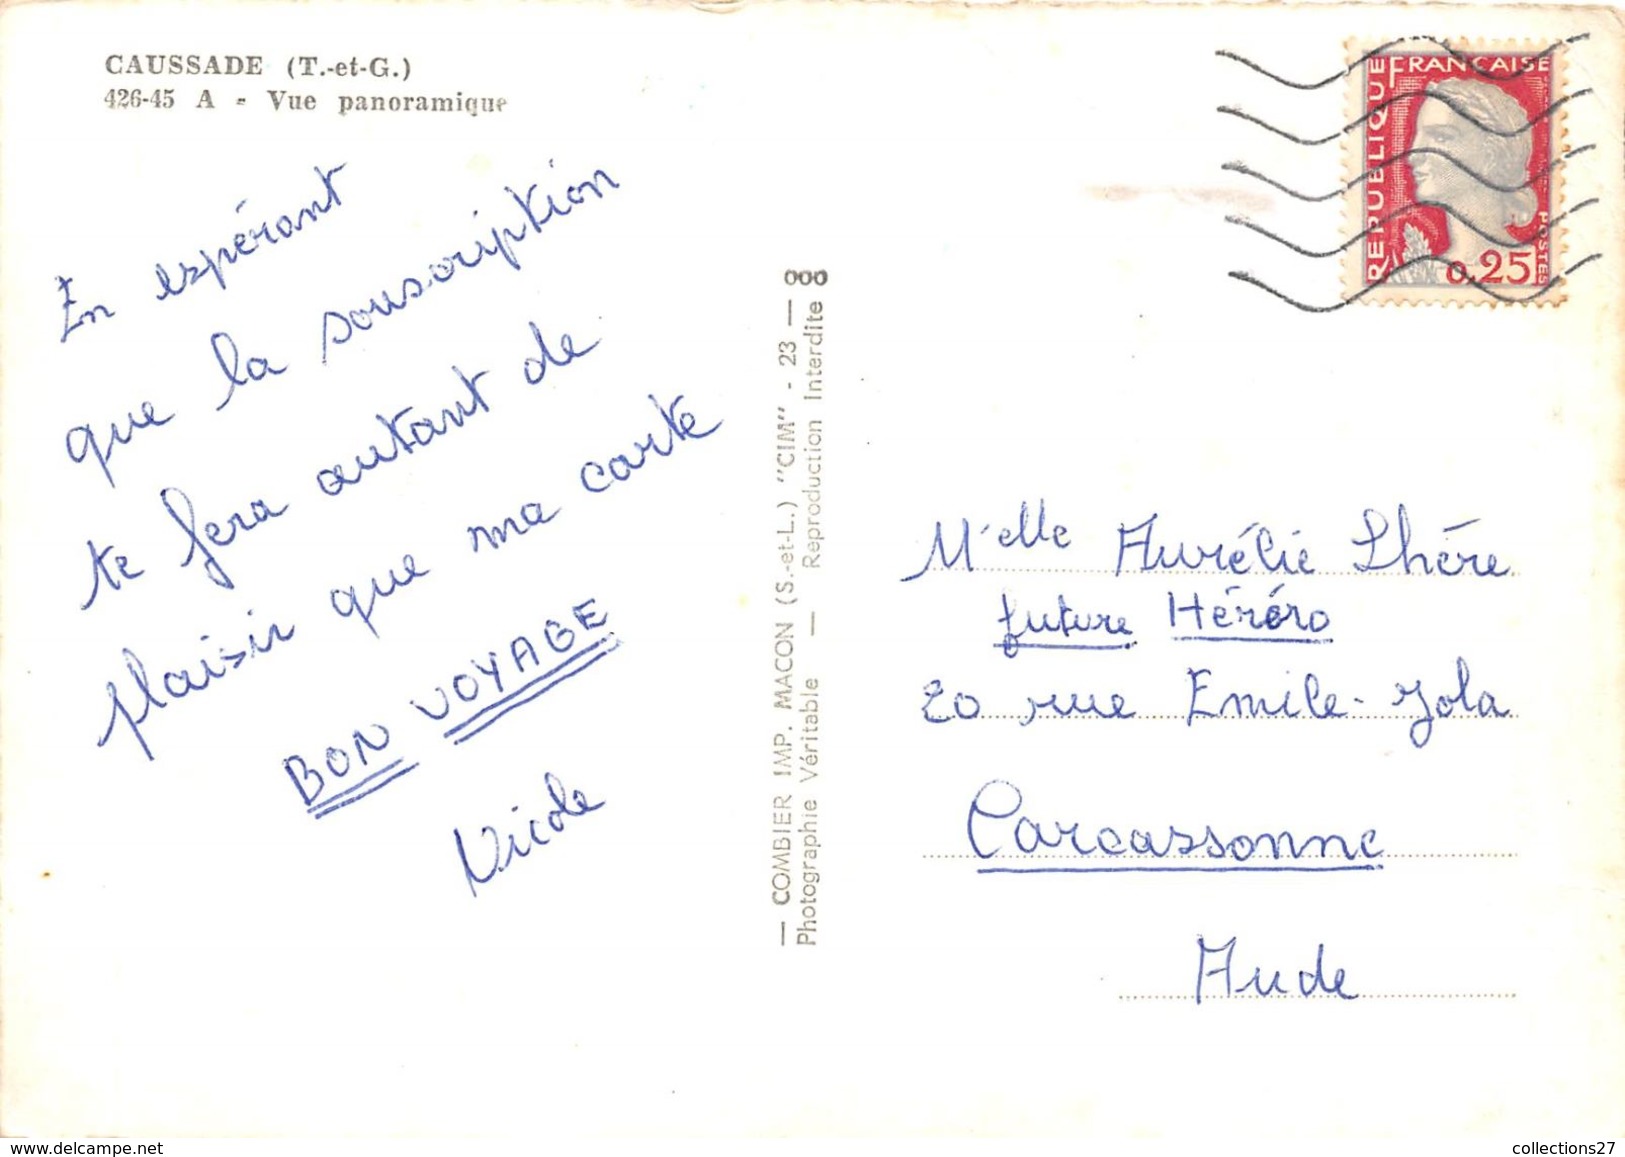 CAUSSADE (T.-et-G.)
426-45 A - Vue panoramique
En espérant
que la souscription
te fera autant de
plaisir que ma carte
BON VOYAGE
Nicole
— COMBIER IMP. MACON (S.-et-L.) "CIM" - 23 —
Photographie Véritable — Reproduction Interdite
REPUBLIQUE
FRANCAISE
POSTES
0,25
M'elle Aurélie Lhére
future Héréro
20 rue Emile-Zola
Carcassonne
Aude
collections27